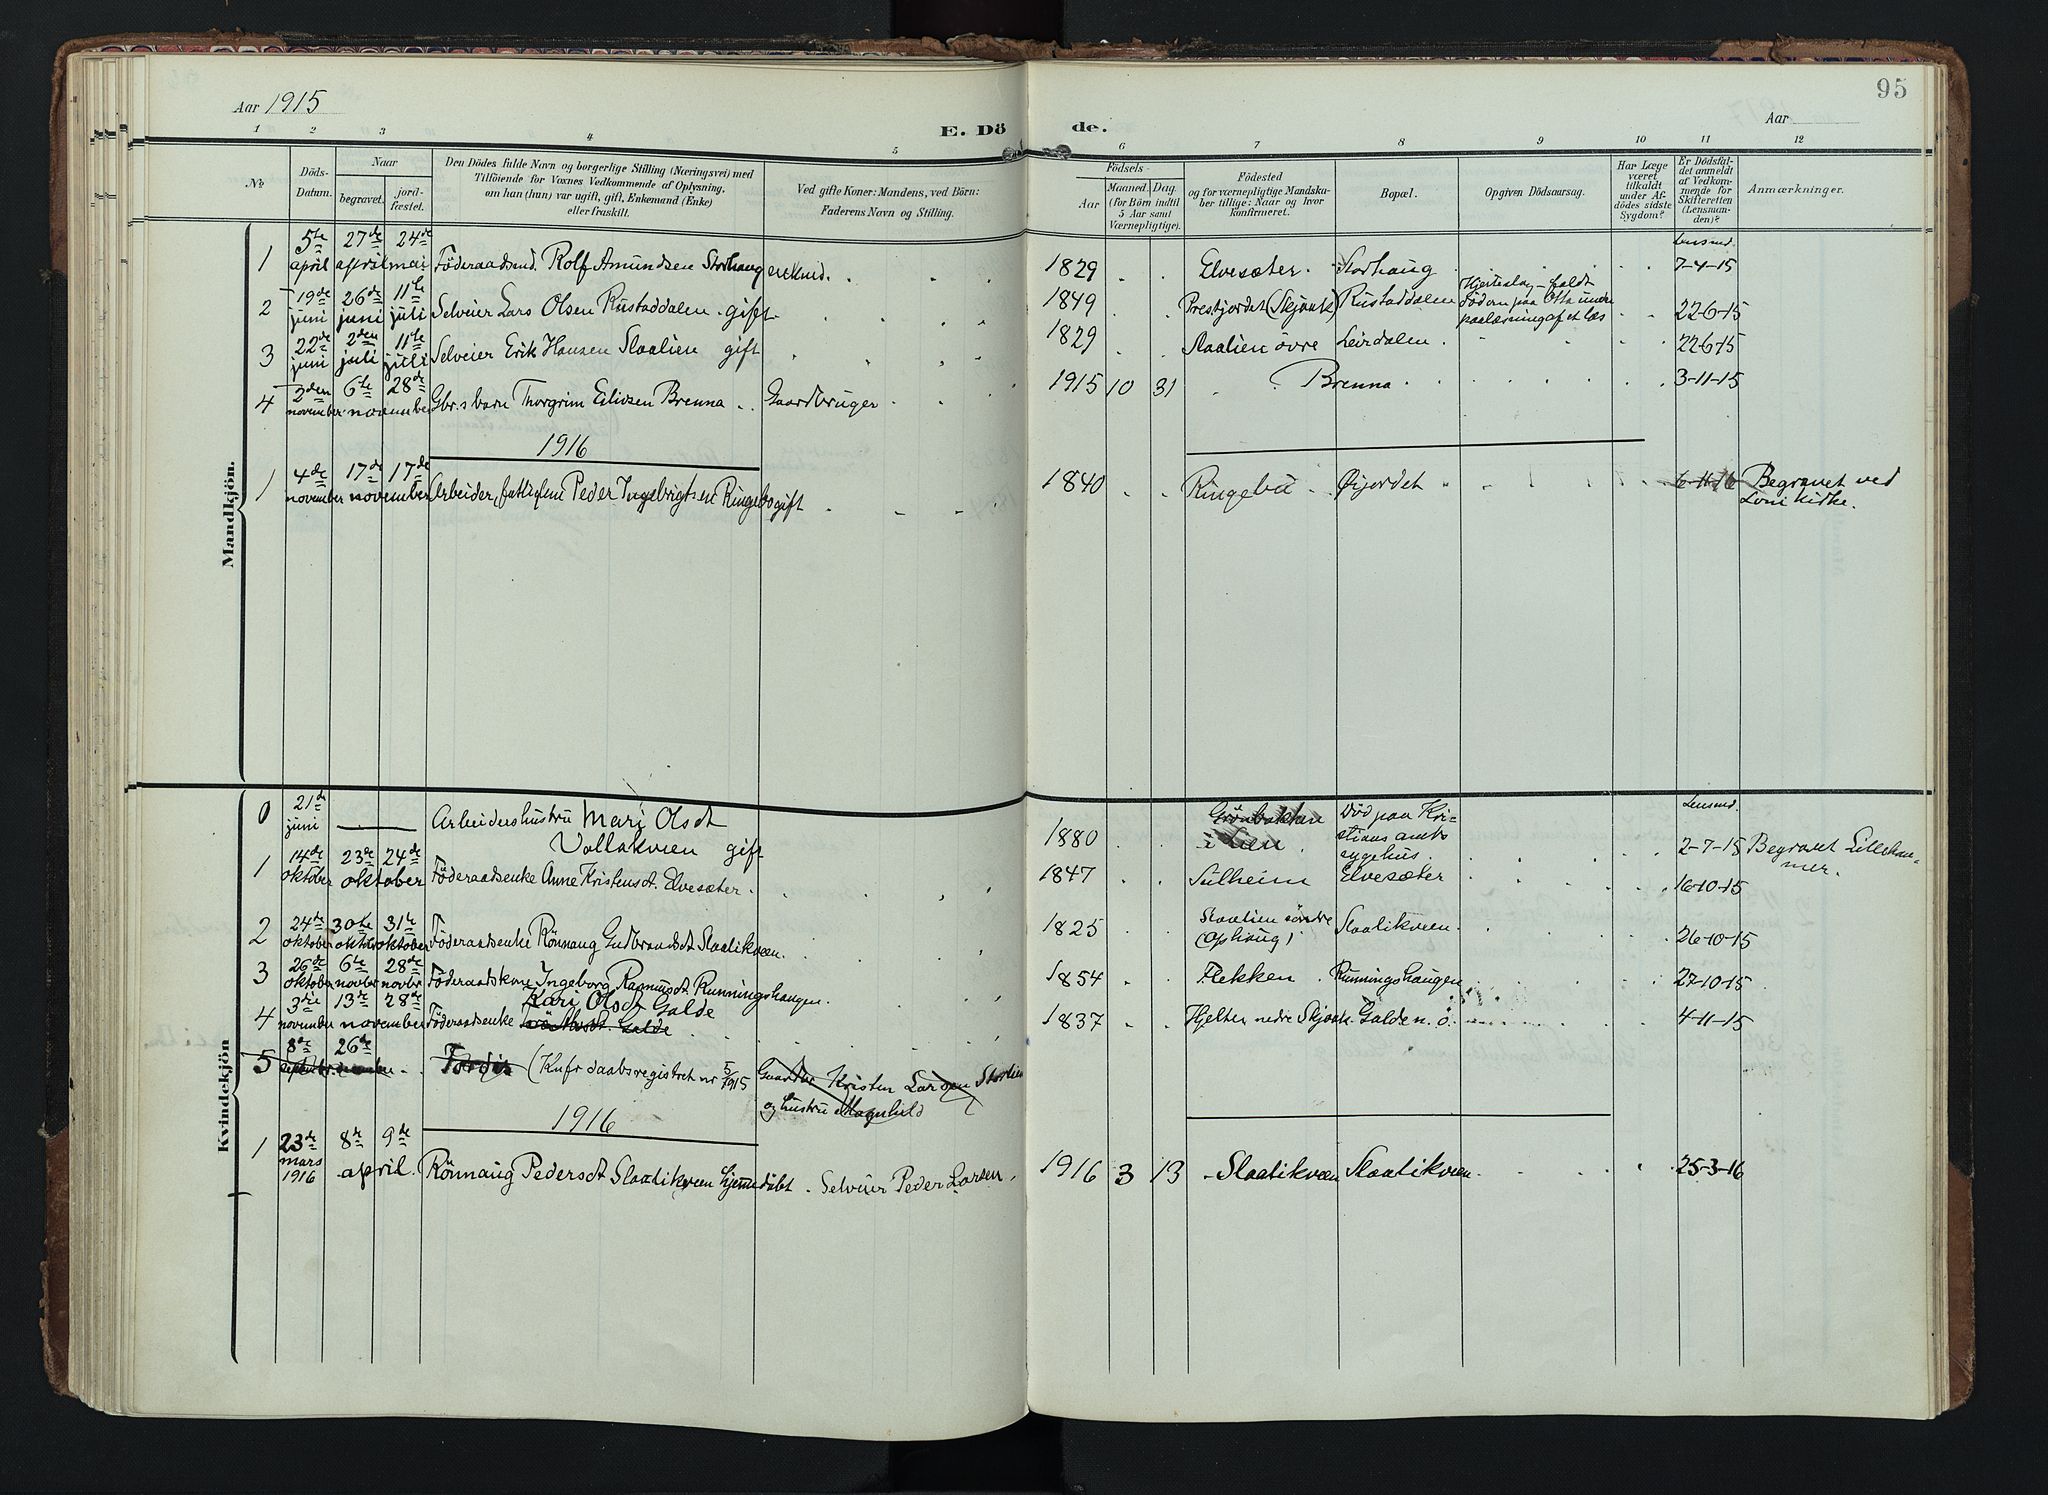 Aar 1915
E. Dö de.
Aar
95
1 2 3 4 5 6 7 8 9 10 11 12
№
Döds-Datum.
Naar
begravet.
jord-fæstet.
Den Dödes fulde Navn og borgerlige Stilling (Næringsvei) med
Tilföiende for Voxnes Vedkommende af Oplysning,
om han (hun) var ugift, gift, Enkemand (Enke)
eller fraskilt.
Ved gifte Koner: Mandens, ved Börn:
Faderens Navn og Stilling.
Födsels-
Aar
Maaned. Dag.
(for Börn indtil
5 Aar samt
Værnepligtige).
Födested
og for værnepligtige Mandska-
ber tillige: Naar og hvor
konfirmeret.
Bopæl.
Opgiven Dödsaarsag.
Har Læge
været
tilkaldt
under Af-
dödes sidste
Sygdom?
Er Dödsfal-
det anmeldt
af Vedkom-
mende for
Skifteretten
(Lensman-
den)?
Anmærkninger.
Mandkjön.
1 5te april 27de april 24de mai Föderaadsmd. Rolf Amundsen Storhaug enkmd. 1829 Elvesæter. Storhaug Lensmd. 7-4-15
2 19de juni 26de juni 11te juli Selveier Lars Olsen Rustaddalen. gift. 1849 Prestjordet (Skjaak) Rustaddalen Hjerteslag - faldt död om paa Otta under paalæsning af et læs 22-6-15
3 22de juni 2den juli 11te juli Selveier Erik Hansen Slaalien gift 1829 Slaalien øvre Leirdalen. 22-6-15
4 2den november 6te november 28de november Gbr.s barn Thorgrim Eilivsen Brenna Gaardbruger 1915 10 31 Brenna 3-11-15
1916
1 4de november 17de november 17de november Arbeider, fatliglem Peder Ingebrigtsen Ringebo gift 1840 Ringebu Øijordet 6-11-16 Begravet ved Lom kirke.
Kvindekjön
0 21de juni — Arbeidershustru Mari Olsdt Vollakveen gift 1880 Grönbakken i Lien Död paa Kristians amts sygehus. Lensmd. 2-7-15 Begravet Lillehammer.
1 14de oktober 23de oktober 24de oktober Föderaadsenke Anne Kristensdt. Elvesæter. 1847 Sulheim Elvesæter 16-10-15
2 24de oktober 30te oktbr 31te oktober Föderaadsenke Rönnaug Gudbrandsdt Slaalikveen. 1825 Slaalien söndre (Ophaug) Slaalikveen. 26-10-15
3 26de oktober 6te novbr 28de novbr Föderaadskone Ingeborg Rasmusdt. Runningshaugen. 1854 Flekken Runningshaugen 27-10-15
4 3die november 13de november 28de Föderaadsenke Kari Olsdt Galde Galde 1837 Hjelten nedre Skjaak. Galden. ö. 4-11-15
5 8de septbr. 26de Tordis (Knfr daabsregistret nr 5/1915 Gaardbr Kristen Larsen Storlien og hustru Magnhild
1916
1 23de mars 1916 8de april 9de Rönnaug Pedersdt Slaalikveen hjemedöbt Selveier Peder Larsen 1916 3 13 Slaalikveen Slaalikveen. 25-3-16